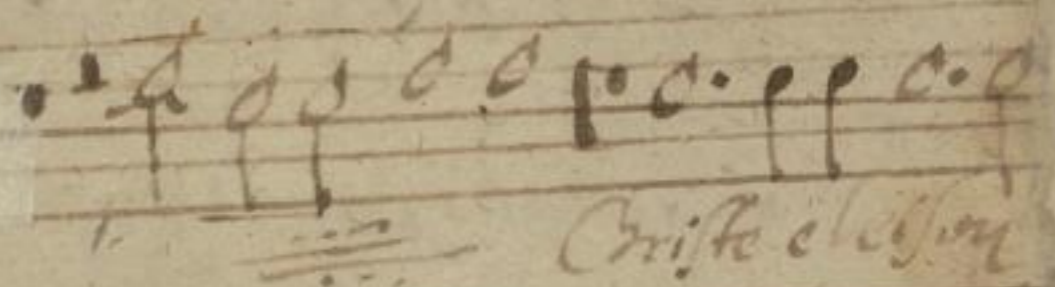 Christe eleison